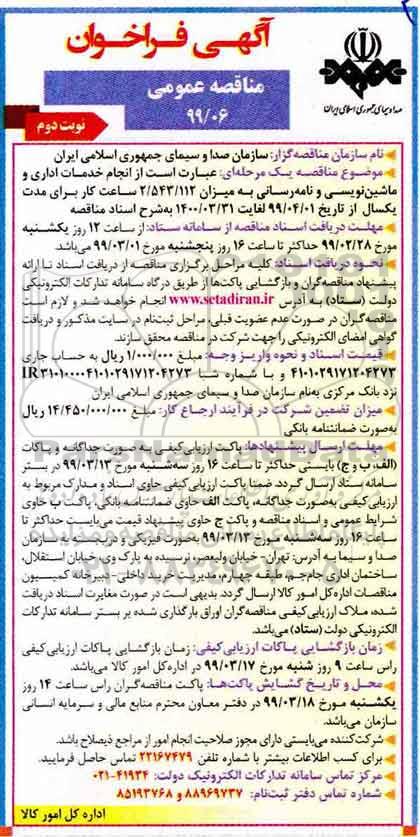 آگهی فراخوان
مناقصه عمومی
۹۹/۰۶
نوبت دوم
صدا و سیمای جمهوری اسلامی ایران
نام سازمان مناقصه‌گزار: سازمان صدا و سیمای جمهوری اسلامی ایران
موضوع مناقصه یک مرحله‌ای: عبارت است از انجام خدمات اداری و
ماشین‌نویسی و نامه‌رسانی به میزان ۲/۵۴۳/۱۱۲ ساعت کار برای مدت
یکسال از تاریخ ۹۹/۰۴/۰۱ لغایت ۱۴۰۰/۰۳/۳۱ به‌شرح اسناد مناقصه
مهلت دریافت اسناد مناقصه از سامانه ستاد: از ساعت ۱۲ روز یکشنبه
مورخ ۹۹/۰۲/۲۸ حداکثر تا ساعت ۱۶ روز پنجشنبه مورخ ۹۹/۰۳/۰۱ می‌باشد.
نحوه دریافت اسناد: کلیه مراحل برگزاری مناقصه از دریافت اسناد تا ارائه
پیشنهاد مناقصه‌گران و بازگشایی پاکت‌ها از طریق درگاه سامانه تدارکات الکترونیکی
دولت (ستاد) به آدرس www.setadiran.ir انجام خواهد شد و لازم است
مناقصه‌گران در صورت عدم عضویت قبلی، مراحل ثبت‌نام در سایت مذکور و دریافت
گواهی امضای الکترونیکی را جهت شرکت در مناقصه محقق سازند.
قیمت اسناد و نحوه واریز وجه: مبلغ ۱/۰۰۰/۰۰۰ ریال به حساب جاری
۴۱۰۱۰۲۹۱۷۱۲۰۴۲۷۳ و با شماره شبا IR۳۱۰۱۰۰۰۰۴۱۰۱۰۲۹۱۷۱۲۰۴۲۷۳
نزد بانک مرکزی به‌نام سازمان صدا و سیمای جمهوری اسلامی ایران
میزان تضمین شرکت در فرآیند ارجاع کار: مبلغ ۱۴/۴۵۰/۰۰۰/۰۰۰ ریال
به‌صورت ضمانتنامه بانکی
مهلت ارسال پیشنهادها: پاکت ارزیابی کیفی به صورت جداگانه و پاکات
(الف، ب و ج) بایستی حداکثر تا ساعت ۱۶ روز سه‌شنبه مورخ ۹۹/۰۳/۱۳ در بستر
سامانه ستاد ارسال گردد. ضمنا پاکت ارزیابی کیفی حاوی اسناد و مدارک مربوط به
ارزیابی کیفی به‌صورت جداگانه، پاکت الف حاوی ضمانتنامه بانکی، پاکت ب حاوی
شرایط عمومی و اسناد مناقصه و پاکت ج حاوی پیشنهاد قیمت می‌بایست حداکثر تا
ساعت ۱۶ روز سه‌شنبه مورخ ۹۹/۰۳/۱۳ به‌صورت فیزیکی و دربسته به سازمان
صدا و سیما به آدرس: تهران- خیابان ولیعصر، نرسیده به پارک وی، خیابان استقلال،
ساختمان اداری جام‌جم، طبقه چهارم، مدیریت خرید داخلی- دبیرخانه کمیسیون
مناقصات اداره‌کل امور کالا ارسال گردد. بدیهی است در صورت مغایرت اسناد دریافت
شده، ملاک ارزیابی کیفی مناقصه‌گران اوراق بارگذاری شده بر بستر سامانه تدارکات
الکترونیکی دولت (ستاد) می‌باشد.
زمان بازگشایی پاکات ارزیابی کیفی: زمان بازگشایی پاکات ارزیابی کیفی
راس ساعت ۹ روز شنبه مورخ ۹۹/۰۳/۱۷ در اداره‌کل امور کالا می‌باشد.
محل و تاریخ گشایش پاکت‌ها: پاکت مناقصه‌گران راس ساعت ۱۴ روز
یکشنبه مورخ ۹۹/۰۳/۱۸ در دفتر معاون محترم منابع مالی و سرمایه انسانی
سازمان می‌باشد.
شرکت‌کننده می‌بایستی دارای مجوز صلاحیت انجام امور از مراجع ذیصلاح باشد.
برای کسب اطلاعات بیشتر با شماره تلفن ۲۲۱۶۷۴۷۹ تماس حاصل فرمایید.
مرکز تماس سامانه تدارکات الکترونیک دولت: ۴۱۹۳۴-۰۲۱
شماره تماس دفتر ثبت‌نام: ۸۸۹۶۹۷۳۷ و ۸۵۱۹۳۷۶۸
اداره کل امور کالا